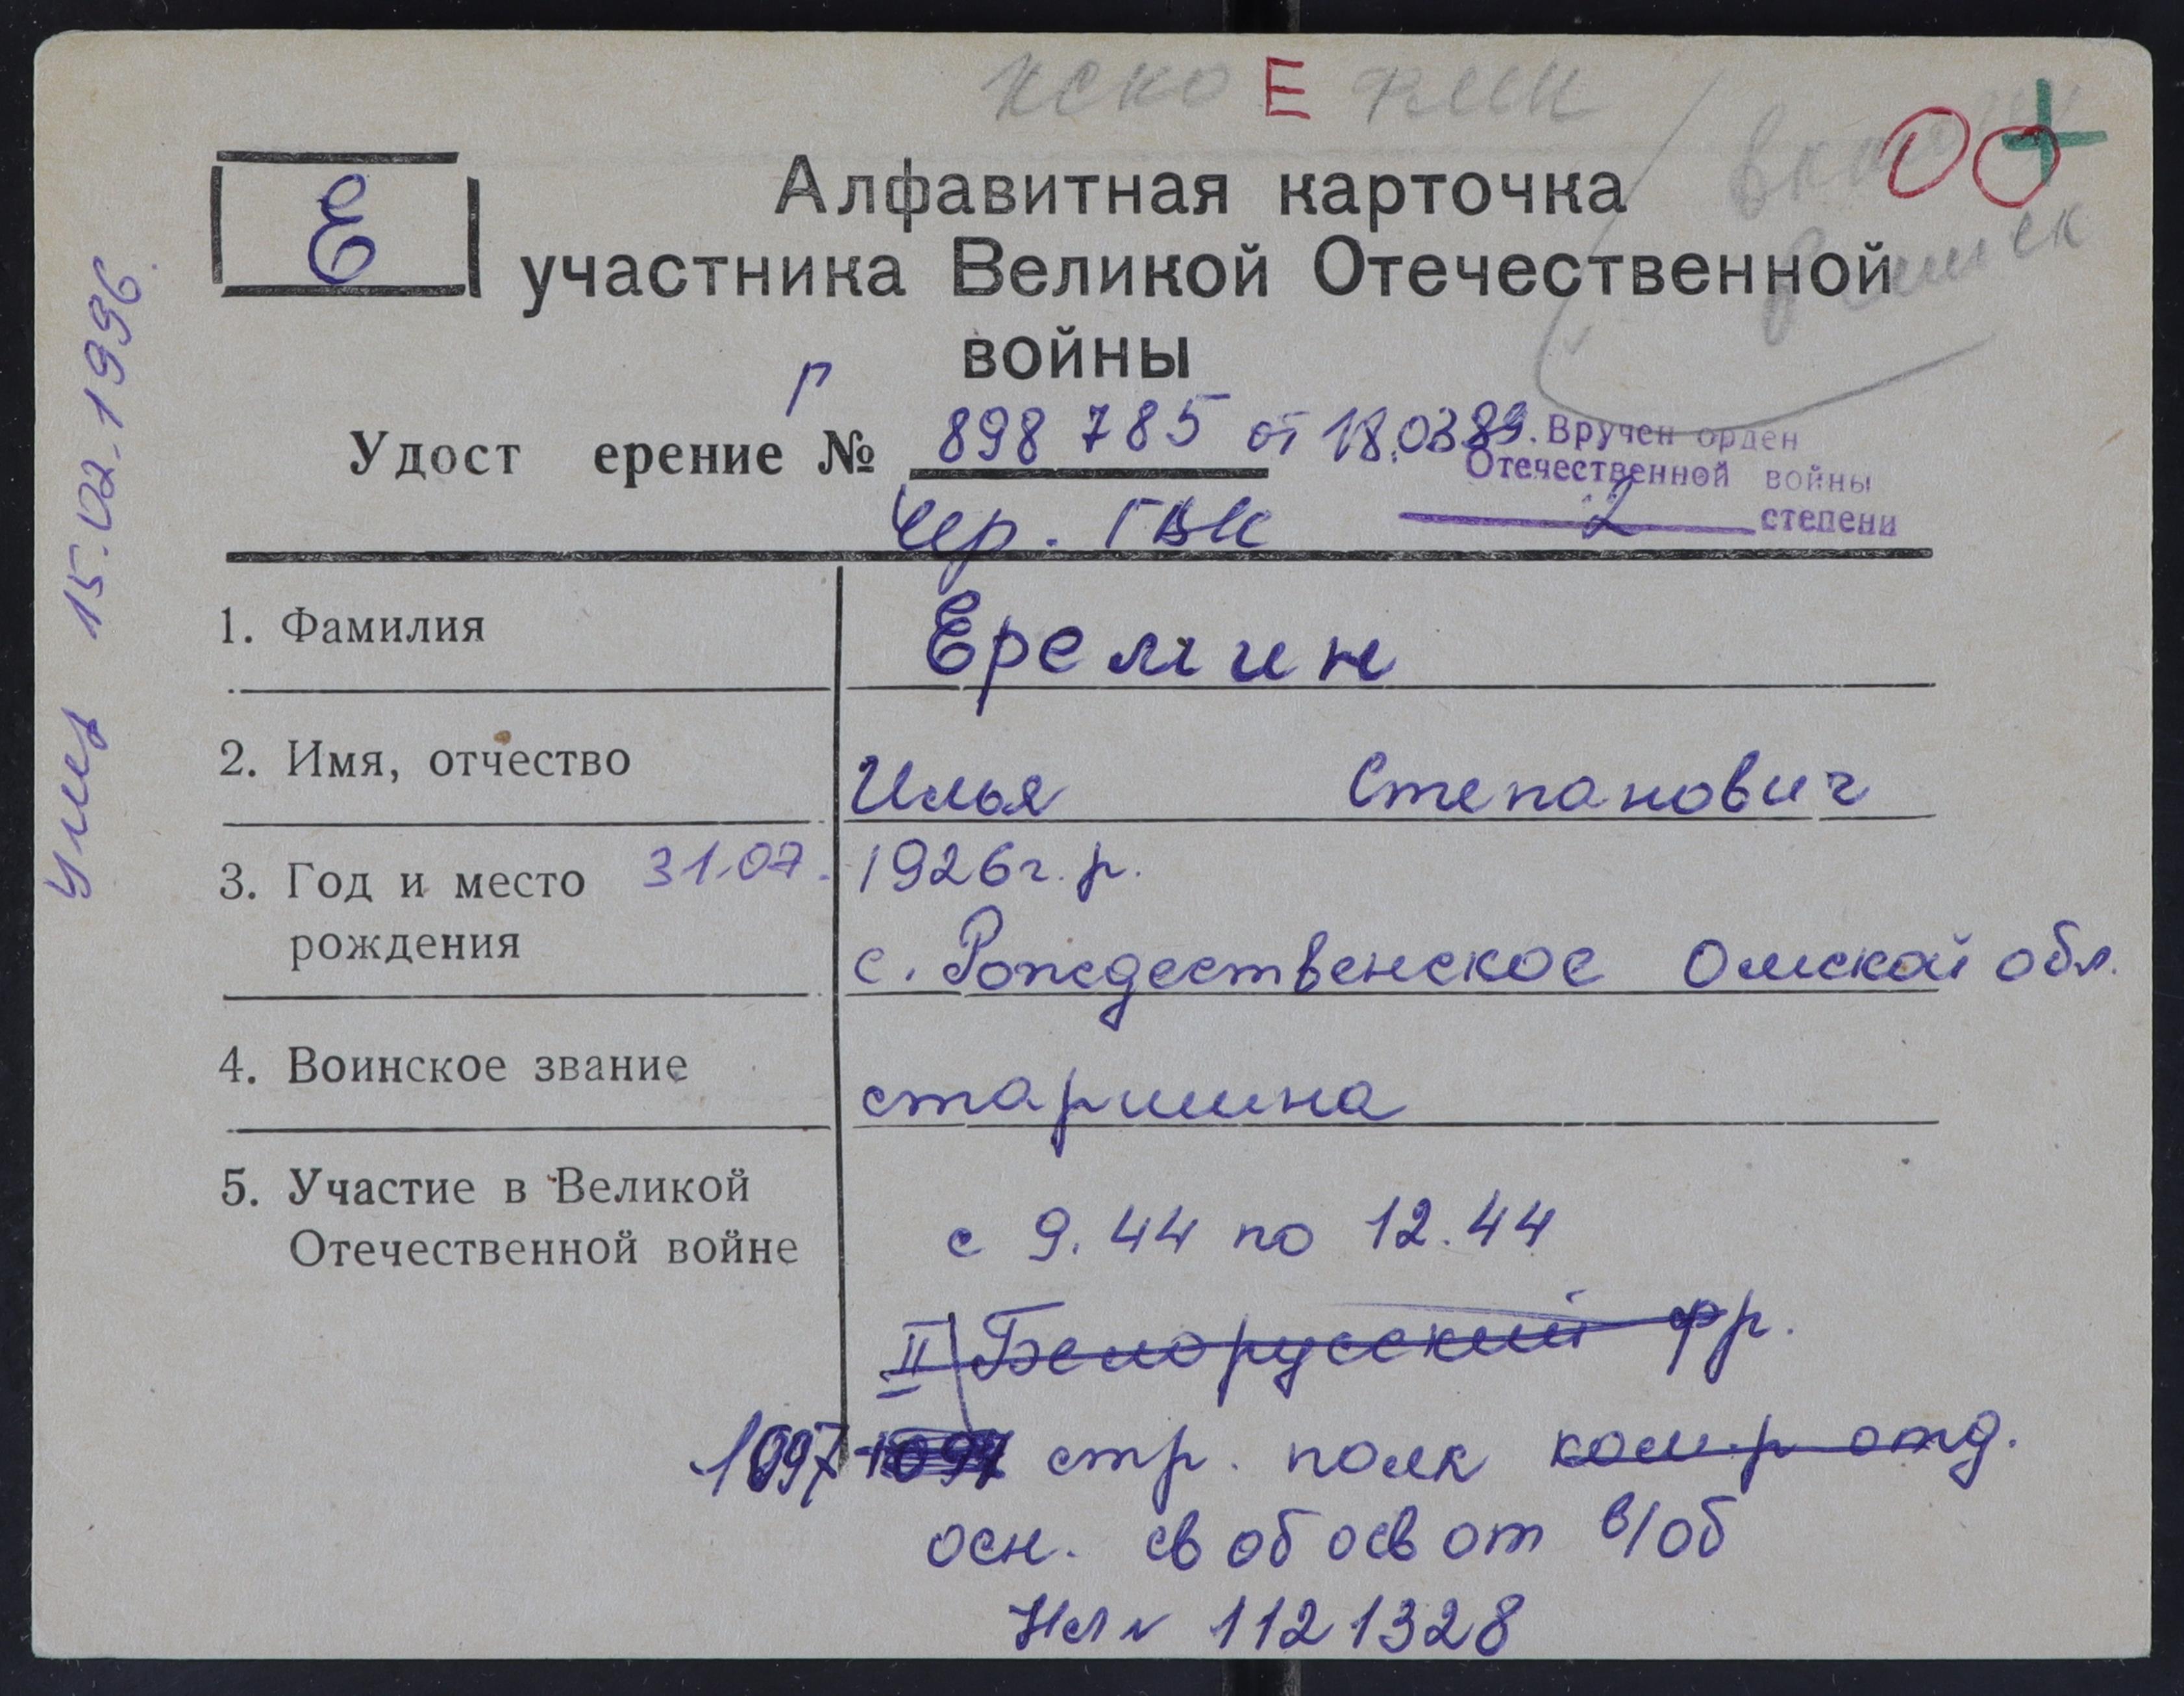 Е
Е
Алфавитная карточка
участника Великой Отечественной
войны
Г
Удост ерение № 898 785 от 18.03.89.
Вручен орден
Отечественной войны
2 степени
Чер. ГВК
1. Фамилия Еремин
2. Имя, отчество Илья Степанович
3. Год и место рождения 31.07. 1926 г.р.
с. Рождественское Омской обл.
4. Воинское звание старшина
5. Участие в Великой
Отечественной войне
с 9.44 по 12.44
II Белорусский фр.
1097 стр. полк ком-р отд.
осн. св об осв от в/об
НЛ N 1121328
умер 15.02.1996.